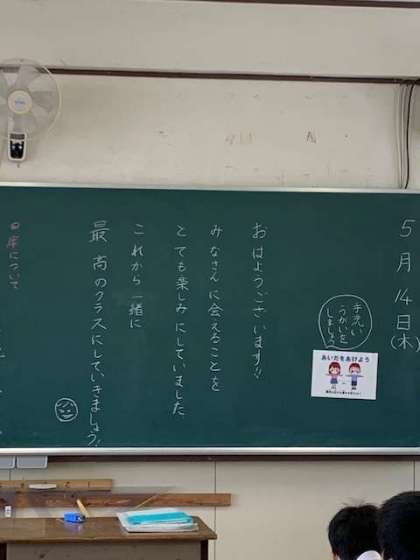 5月14日(木)
手洗い
うがいを
しましょう
あいだをあけよう
おはようございます!!
みなさんに会えることを
とても楽しみにしていました
これから一緒に
最高のクラスにしていきましょう!
日座について